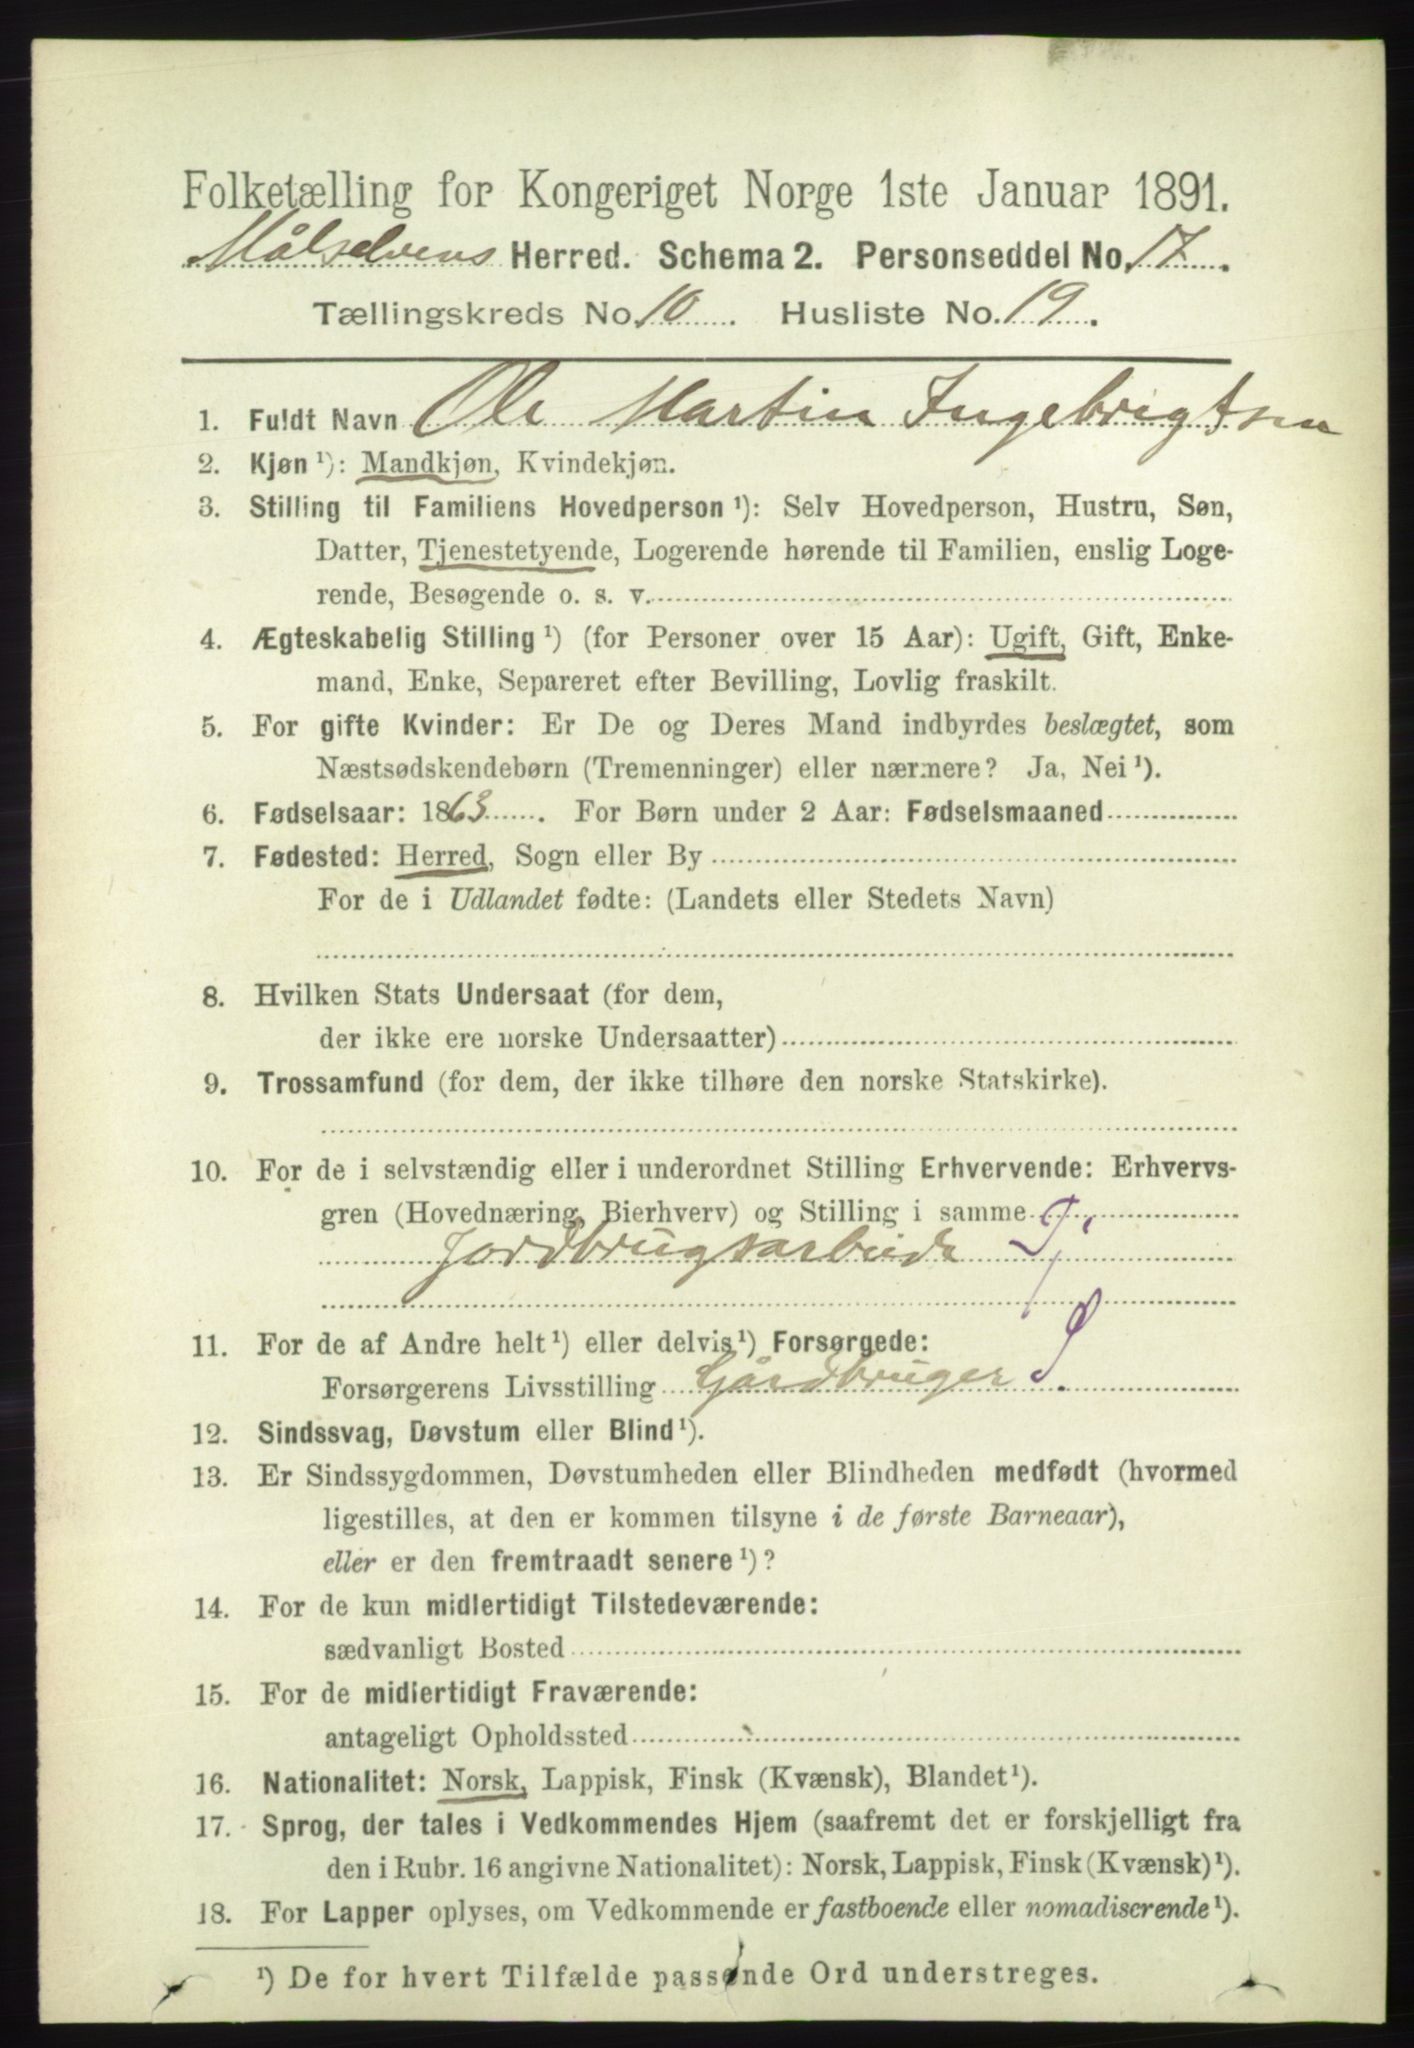 Folketælling for Kongeriget Norge 1ste Januar 1891.
Målselvens Herred. Schema 2. Personseddel No. 17.
Tællingskreds No. 10. Husliste No. 19.
1. Fuldt Navn Ole Martin Ingebrigtsen
2. Kjøn ¹): Mandkjøn, Kvindekjøn.
3. Stilling til Familiens Hovedperson ¹): Selv Hovedperson, Hustru, Søn,
Datter, Tjenestetyende, Logerende hørende til Familien, enslig Loge-
rende, Besøgende o. s. v.
4. Ægteskabelig Stilling ¹) (for Personer over 15 Aar): Ugift, Gift, Enke-
mand, Enke, Separeret efter Bevilling, Lovlig fraskilt.
5. For gifte Kvinder: Er De og Deres Mand indbyrdes beslægtet, som
Næstsødskendebørn (Tremenninger) eller nærmere? Ja, Nei ¹).
6. Fødselsaar: 1863. For Børn under 2 Aar: Fødselsmaaned
7. Fødested: Herred, Sogn eller By
For de i Udlandet fødte: (Landets eller Stedets Navn)
8. Hvilken Stats Undersaat (for dem,
der ikke ere norske Undersaatter)
9. Trossamfund (for dem, der ikke tilhøre den norske Statskirke).
10. For de i selvstændig eller i underordnet Stilling Erhvervende: Erhvervs-
gren (Hovednæring, Bierhverv) og Stilling i samme
Jordbrugsarbeide T
11. For de af Andre helt ¹) eller delvis ¹) Forsørgede:
Forsørgerens Livsstilling Gårdbruger S.
12. Sindssvag, Døvstum eller Blind ¹).
13. Er Sindssygdommen, Døvstumheden eller Blindheden medfødt (hvormed
ligestilles, at den er kommen tilsyne i de første Barneaar),
eller er den fremtraadt senere ¹)?
14. For de kun midlertidigt Tilstedeværende:
sædvanligt Bosted
15. For de midlertidigt Fraværende:
antageligt Opholdssted
16. Nationalitet: Norsk, Lappisk, Finsk (Kvænsk), Blandet ¹).
17. Sprog, der tales i Vedkommendes Hjem (saafremt det er forskjelligt fra
den i Rubr. 16 angivne Nationalitet): Norsk, Lappisk, Finsk (Kvænsk) ¹).
18. For Lapper oplyses, om Vedkommende er fastboende eller nomadiserende ¹).
¹) De for hvert Tilfælde passende Ord understreges.